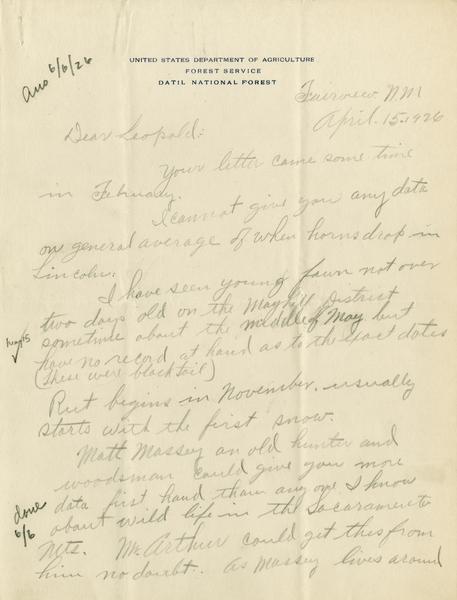 ans 6/6/26
UNITED STATES DEPARTMENT OF AGRICULTURE
FOREST SERVICE
DATIL NATIONAL FOREST
Fairview N.M
April. 15. 1926
Dear Leopold:
Your letter came some time
in February.
I cannot give you any data
on general average of when horns drop in
Lincoln:
I have seen young fawn not over
two days old on the Mayhill District
May 15
sometime about the middle of May but
have no record at hand as to the exact dates
(these were blacktail)
Rut begins in November. usually
starts with the first snow.
Matt Massey an old hunter and
woodsman could give you more
done
6/6
data first hand than any one I know
about wild life in the Sacramento
Mts. McArthur could get this from
him no doubt. As Massey lives around